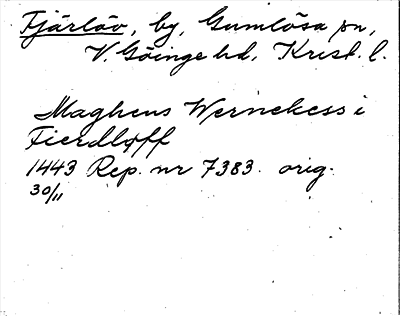 Fjärlöv, by, Gumlösa sn,
V. Göinge hd, Krist. l.
Maghens Wernekess i
Fierdløff
1443 Rep. nr 7383. orig.
30/11